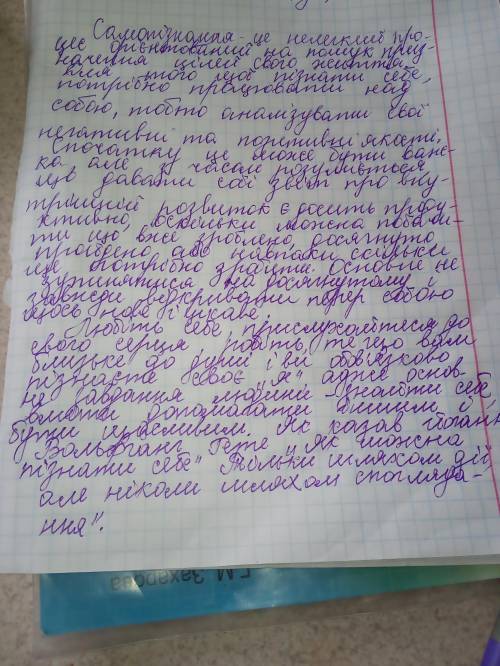 Самопізнання - це нелегкий про-
цес орієнтований на пошук приз-
начення цілей свого життя,
для того щоб пізнати себе,
потрібно працювати над
собою, тобто аналізувати свої
негативні та позитивні якості,
Спочатку це може бути важ-
ко але з часом розумієтеся
що давати собі звіт про вну-
трішній розвиток є досить проду-
ктивно, оскільки можна побачи-
ти що вже зроблено, досягнуто
пройдено, або навпаки скільки
ще потрібно зробити. Основне не
зупинятися на досягнутому і
завжди відкривати перед собою
щось нове і цікаве.
Любіть себе прислухайтеся до
свого серця робіть те, що вам
близьке до душі і ви обов'язково
пізнаєте своє "я" адже основ-
не завдання людини - знайти себе
вміти допомагати іншим і
бути щасливим. Як казав Йоганн
Вольфганг Гете „ Як можна
пізнати себе" Тільки шляхом дії
але ніколи шляхом споглядa-
ння".
Г.М. Захарова